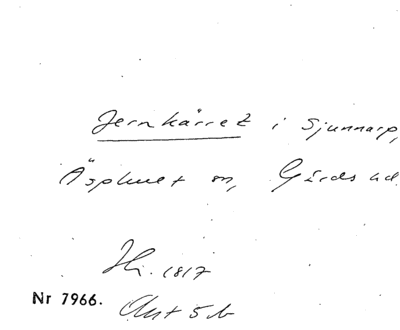 Jernkärret i Sjunnarp,
Äsphult sn, Gärds hd.
Hi. 1817
Nr 7966. Akt 5 b